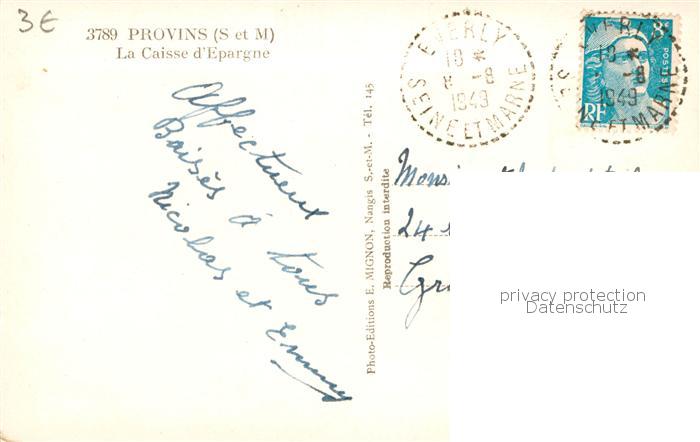 3€
3789 PROVINS (S et M)
La Caisse d'Epargne
Affectueux
Baisés à tous
Nicolas et Emmy
Photo-Editions E. MIGNON, Nangis S.-et-M. - Tél. 145
Reproduction interdite
EVERLY
10 *
8 -8
1949
SEINE ET MARNE
EVERLY
10
8
1949
ET MARNE
POSTES
RF
24
privacy protection
Datenschutz